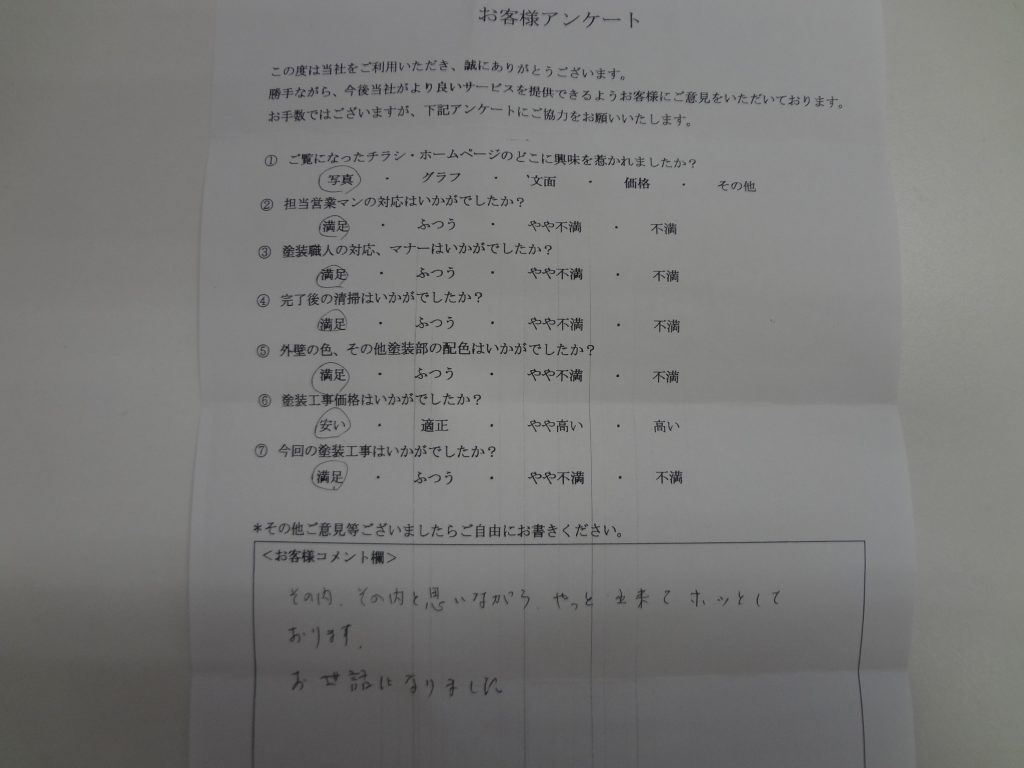 お客様アンケート
この度は当社をご利用いただき、誠にありがとうございます。
勝手ながら、今後当社がより良いサービスを提供できるようお客様にご意見をいただいております。
お手数ではございますが、下記アンケートにご協力をお願いいたします。
① ご覧になったチラシ・ホームページのどこに興味を惹かれましたか？
写真 ・ グラフ ・ 文面 ・ 価格 ・ その他
② 担当営業マンの対応はいかがでしたか？
満足 ・ ふつう ・ やや不満 ・ 不満
③ 塗装職人の対応、マナーはいかがでしたか？
満足 ・ ふつう ・ やや不満 ・ 不満
④ 完了後の清掃はいかがでしたか？
満足 ・ ふつう ・ やや不満 ・ 不満
⑤ 外壁の色、その他塗装部の配色はいかがでしたか？
満足 ・ ふつう ・ やや不満 ・ 不満
⑥ 塗装工事価格はいかがでしたか？
安い ・ 適正 ・ やや高い ・ 高い
⑦ 今回の塗装工事はいかがでしたか？
満足 ・ ふつう ・ やや不満 ・ 不満
＊その他ご意見等ございましたらご自由にお書きください。
＜お客様コメント欄＞
その内、その内と思いながら、やっと出来てホッとして
おります。
お世話になりました